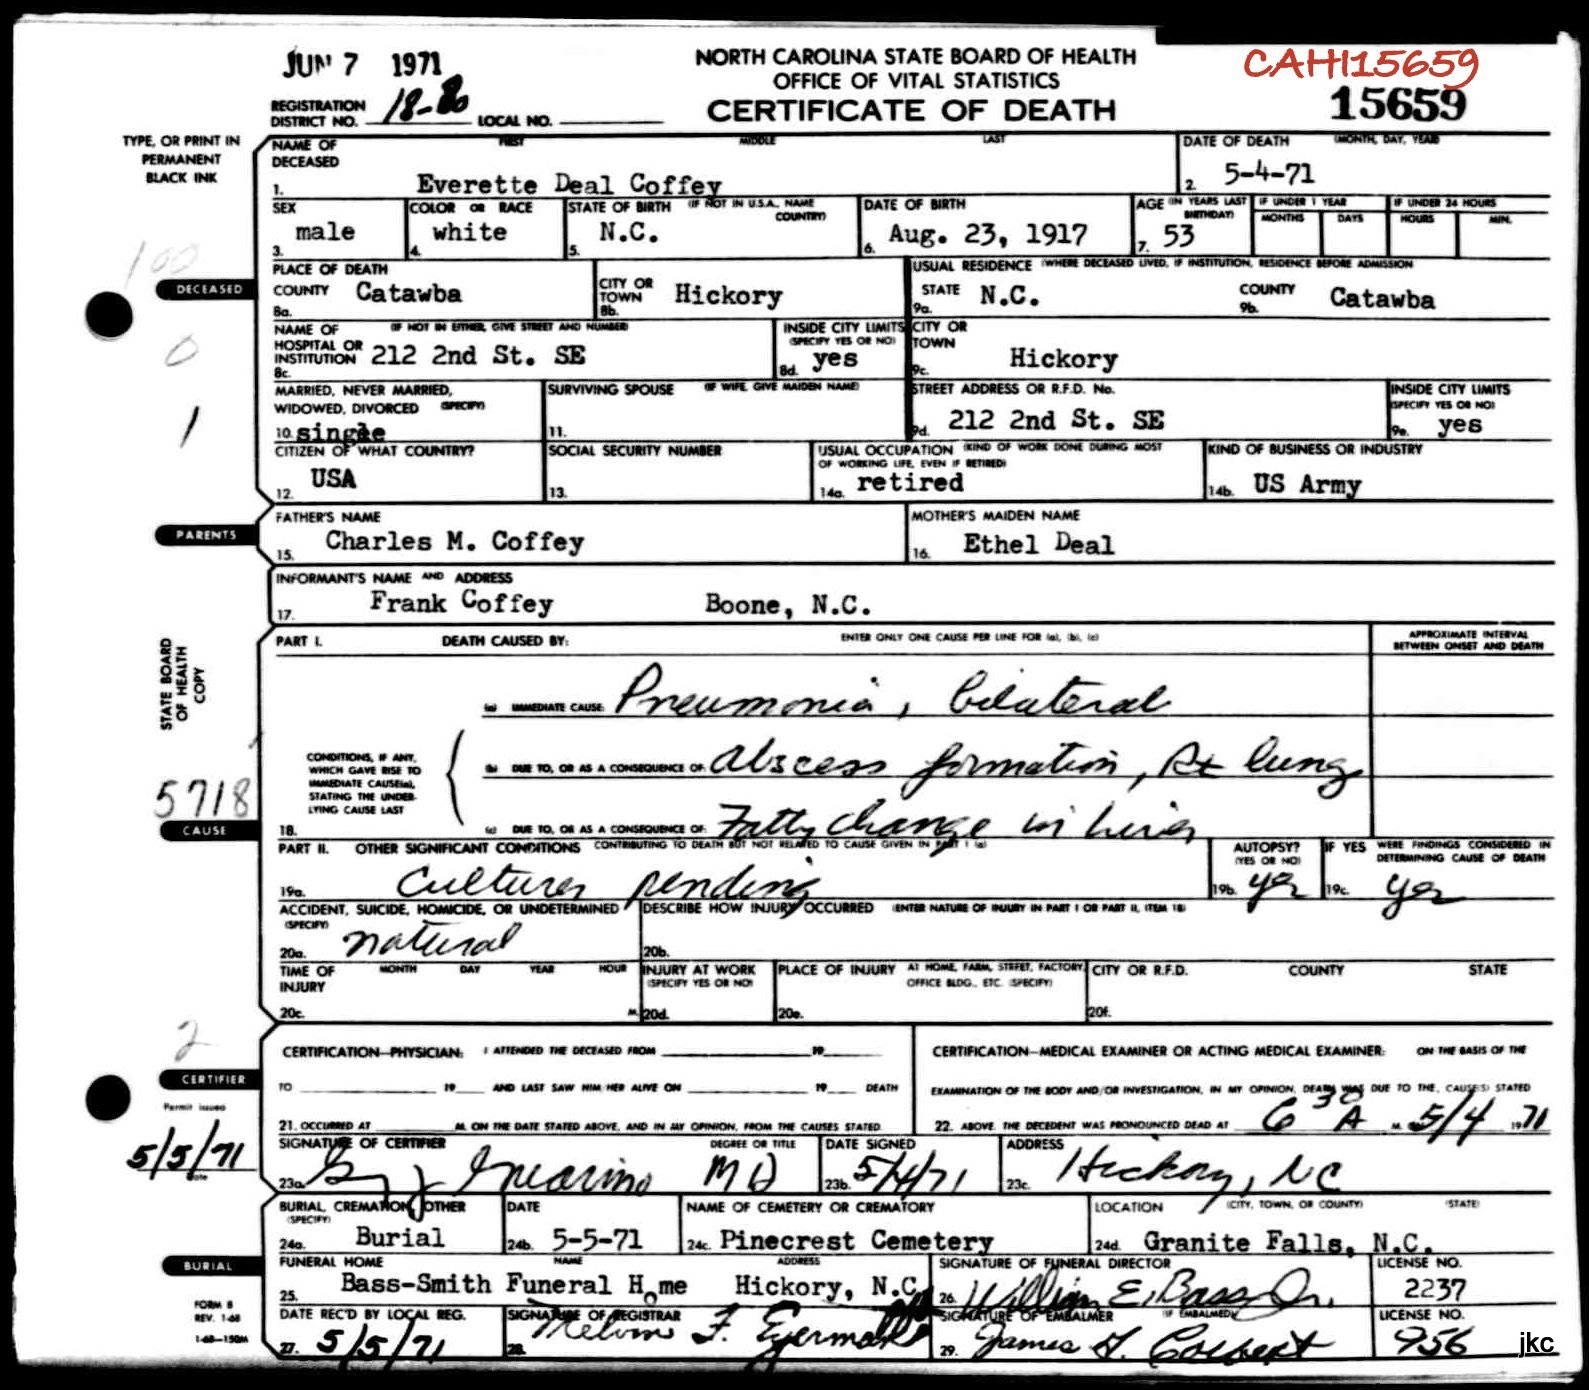 JUN 7 1971
NORTH CAROLINA STATE BOARD OF HEALTH
OFFICE OF VITAL STATISTICS
CERTIFICATE OF DEATH
CAHI15659
15659
REGISTRATION DISTRICT NO. 18-80 LOCAL NO.
TYPE, OR PRINT IN PERMANENT BLACK INK
NAME OF DECEASED FIRST MIDDLE LAST
1. Everette Deal Coffey
DATE OF DEATH (MONTH, DAY, YEAR)
2. 5-4-71
SEX
3. male
COLOR OR RACE
4. white
STATE OF BIRTH (IF NOT IN U.S.A., NAME COUNTRY)
5. N.C.
DATE OF BIRTH
6. Aug. 23, 1917
AGE (IN YEARS LAST BIRTHDAY)
7. 53
IF UNDER 1 YEAR MONTHS DAYS
IF UNDER 24 HOURS HOURS MIN.
100
DECEASED
PLACE OF DEATH
COUNTY Catawba
8a.
CITY OR TOWN Hickory
8b.
USUAL RESIDENCE (WHERE DECEASED LIVED, IF INSTITUTION, RESIDENCE BEFORE ADMISSION
STATE N.C.
9a.
COUNTY Catawba
9b.
0
NAME OF HOSPITAL OR INSTITUTION (IF NOT IN EITHER, GIVE STREET AND NUMBER)
8c. 212 2nd St. SE
INSIDE CITY LIMITS (SPECIFY YES OR NO)
8d. yes
CITY OR TOWN
9c. Hickory
1
MARRIED, NEVER MARRIED, WIDOWED, DIVORCED (SPECIFY)
10. single
SURVIVING SPOUSE (IF WIFE, GIVE MAIDEN NAME)
11.
STREET ADDRESS OR R.F.D. No.
9d. 212 2nd St. SE
INSIDE CITY LIMITS (SPECIFY YES OR NO)
9e. yes
CITIZEN OF WHAT COUNTRY?
12. USA
SOCIAL SECURITY NUMBER
13.
USUAL OCCUPATION (KIND OF WORK DONE DURING MOST OF WORKING LIFE, EVEN IF RETIRED)
14a. retired
KIND OF BUSINESS OR INDUSTRY
14b. US Army
PARENTS
FATHER'S NAME
15. Charles M. Coffey
MOTHER'S MAIDEN NAME
16. Ethel Deal
INFORMANT'S NAME AND ADDRESS
17. Frank Coffey Boone, N.C.
STATE BOARD OF HEALTH COPY
PART I. DEATH CAUSED BY: ENTER ONLY ONE CAUSE PER LINE FOR (a), (b), (c)
APPROXIMATE INTERVAL BETWEEN ONSET AND DEATH
(a) IMMEDIATE CAUSE: Pneumonia, bilateral
CONDITIONS, IF ANY, WHICH GAVE RISE TO IMMEDIATE CAUSE(a), STATING THE UNDERLYING CAUSE LAST
(b) DUE TO, OR AS A CONSEQUENCE OF: Abscess formation, Rt lung
5718
CAUSE
18. (c) DUE TO, OR AS A CONSEQUENCE OF: Fatty change in liver
PART II. OTHER SIGNIFICANT CONDITIONS CONTRIBUTING TO DEATH BUT NOT RELATED TO CAUSE GIVEN IN PART I (a)
19a. Cultures pending
AUTOPSY? (YES OR NO)
19b. yes
IF YES WERE FINDINGS CONSIDERED IN DETERMINING CAUSE OF DEATH
19c. yes
ACCIDENT, SUICIDE, HOMICIDE, OR UNDETERMINED (SPECIFY)
20a. natural
DESCRIBE HOW INJURY OCCURRED (ENTER NATURE OF INJURY IN PART I OR PART II, ITEM 18)
20b.
TIME OF INJURY MONTH DAY YEAR HOUR
20c. M.
INJURY AT WORK (SPECIFY YES OR NO)
20d.
PLACE OF INJURY AT HOME, FARM, STREET, FACTORY, OFFICE BLDG., ETC. (SPECIFY)
20e.
CITY OR R.F.D. COUNTY STATE
20f.
2
CERTIFIER
CERTIFICATION—PHYSICIAN: I ATTENDED THE DECEASED FROM 19
TO 19 AND LAST SAW HIM HER ALIVE ON 19 DEATH
21. OCCURRED AT M. ON THE DATE STATED ABOVE, AND IN MY OPINION, FROM THE CAUSES STATED
CERTIFICATION—MEDICAL EXAMINER OR ACTING MEDICAL EXAMINER: ON THE BASIS OF THE
EXAMINATION OF THE BODY AND/OR INVESTIGATION, IN MY OPINION, DEATH WAS DUE TO THE CAUSE(S) STATED
22. ABOVE. THE DECEDENT WAS PRONOUNCED DEAD AT 6 30 A M. 5/4 1971
Permit issued
5/5/71
Date
SIGNATURE OF CERTIFIER DEGREE OR TITLE
23a. MD
DATE SIGNED
23b. 5/4/71
ADDRESS
23c. Hickory, NC
BURIAL, CREMATION, OTHER (SPECIFY)
24a. Burial
DATE
24b. 5-5-71
NAME OF CEMETERY OR CREMATORY
24c. Pinecrest Cemetery
LOCATION (CITY, TOWN, OR COUNTY) (STATE)
24d. Granite Falls, N.C.
BURIAL
FUNERAL HOME NAME ADDRESS
25. Bass-Smith Funeral Home Hickory, N.C.
SIGNATURE OF FUNERAL DIRECTOR
26. William E. Bass Jr.
LICENSE NO.
2237
FORM 8
REV. 1-68
1-68—150M
DATE REC'D BY LOCAL REG.
27. 5/5/71
SIGNATURE OF REGISTRAR
28. Melvin F. Eyerman
SIGNATURE OF EMBALMER (IF EMBALMED)
29. James G. Colbert
LICENSE NO.
956
jkc